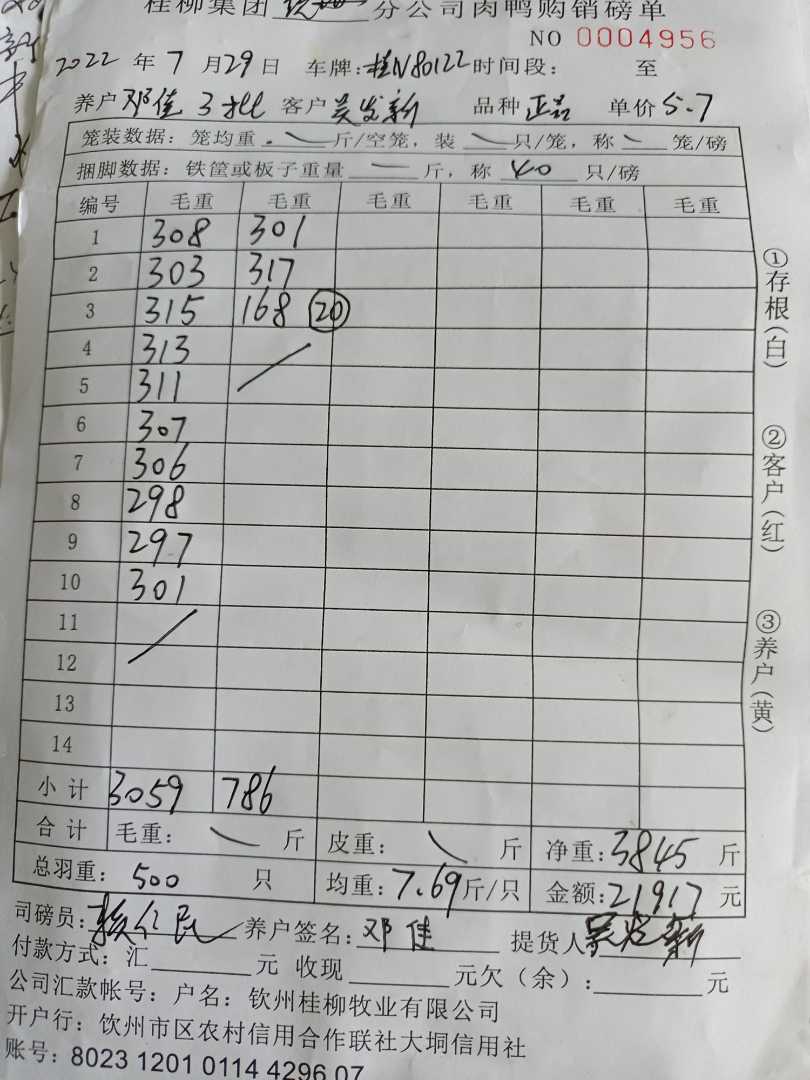 桂柳集团 分公司肉鸭购销磅单
NO 0004956
2022 年 7 月 29 日 车牌: 桂N80122 时间段: 至
养户 邓佳 3批 客户 吴发新 品种 正品 单价 5.7
笼装数据: 笼均重 斤/空笼, 装 只/笼, 称 笼/磅
捆脚数据: 铁筐或板子重量 斤, 称 40 只/磅
编号 毛重 毛重 毛重 毛重 毛重 毛重
1 308 301
2 303 317
3 315 168 20
4 313
5 311
6 307
7 306
8 298
9 297
10 301
11
12
13
14
小计 3059 786
合计 毛重: 斤 皮重: 斤 净重: 3845 斤
总羽重: 500 只 均重: 7.69 斤/只 金额: 21917 元
司磅员: 养户签名: 邓佳 提货人 吴发新
付款方式: 汇 元 收现 元欠(余): 元
公司汇款帐号: 户名: 钦州桂柳牧业有限公司
开户行: 钦州市区农村信用合作联社大垌信用社
账号: 8023 1201 0114 4296 07
①存根(白)
②客户(红)
③养户(黄)